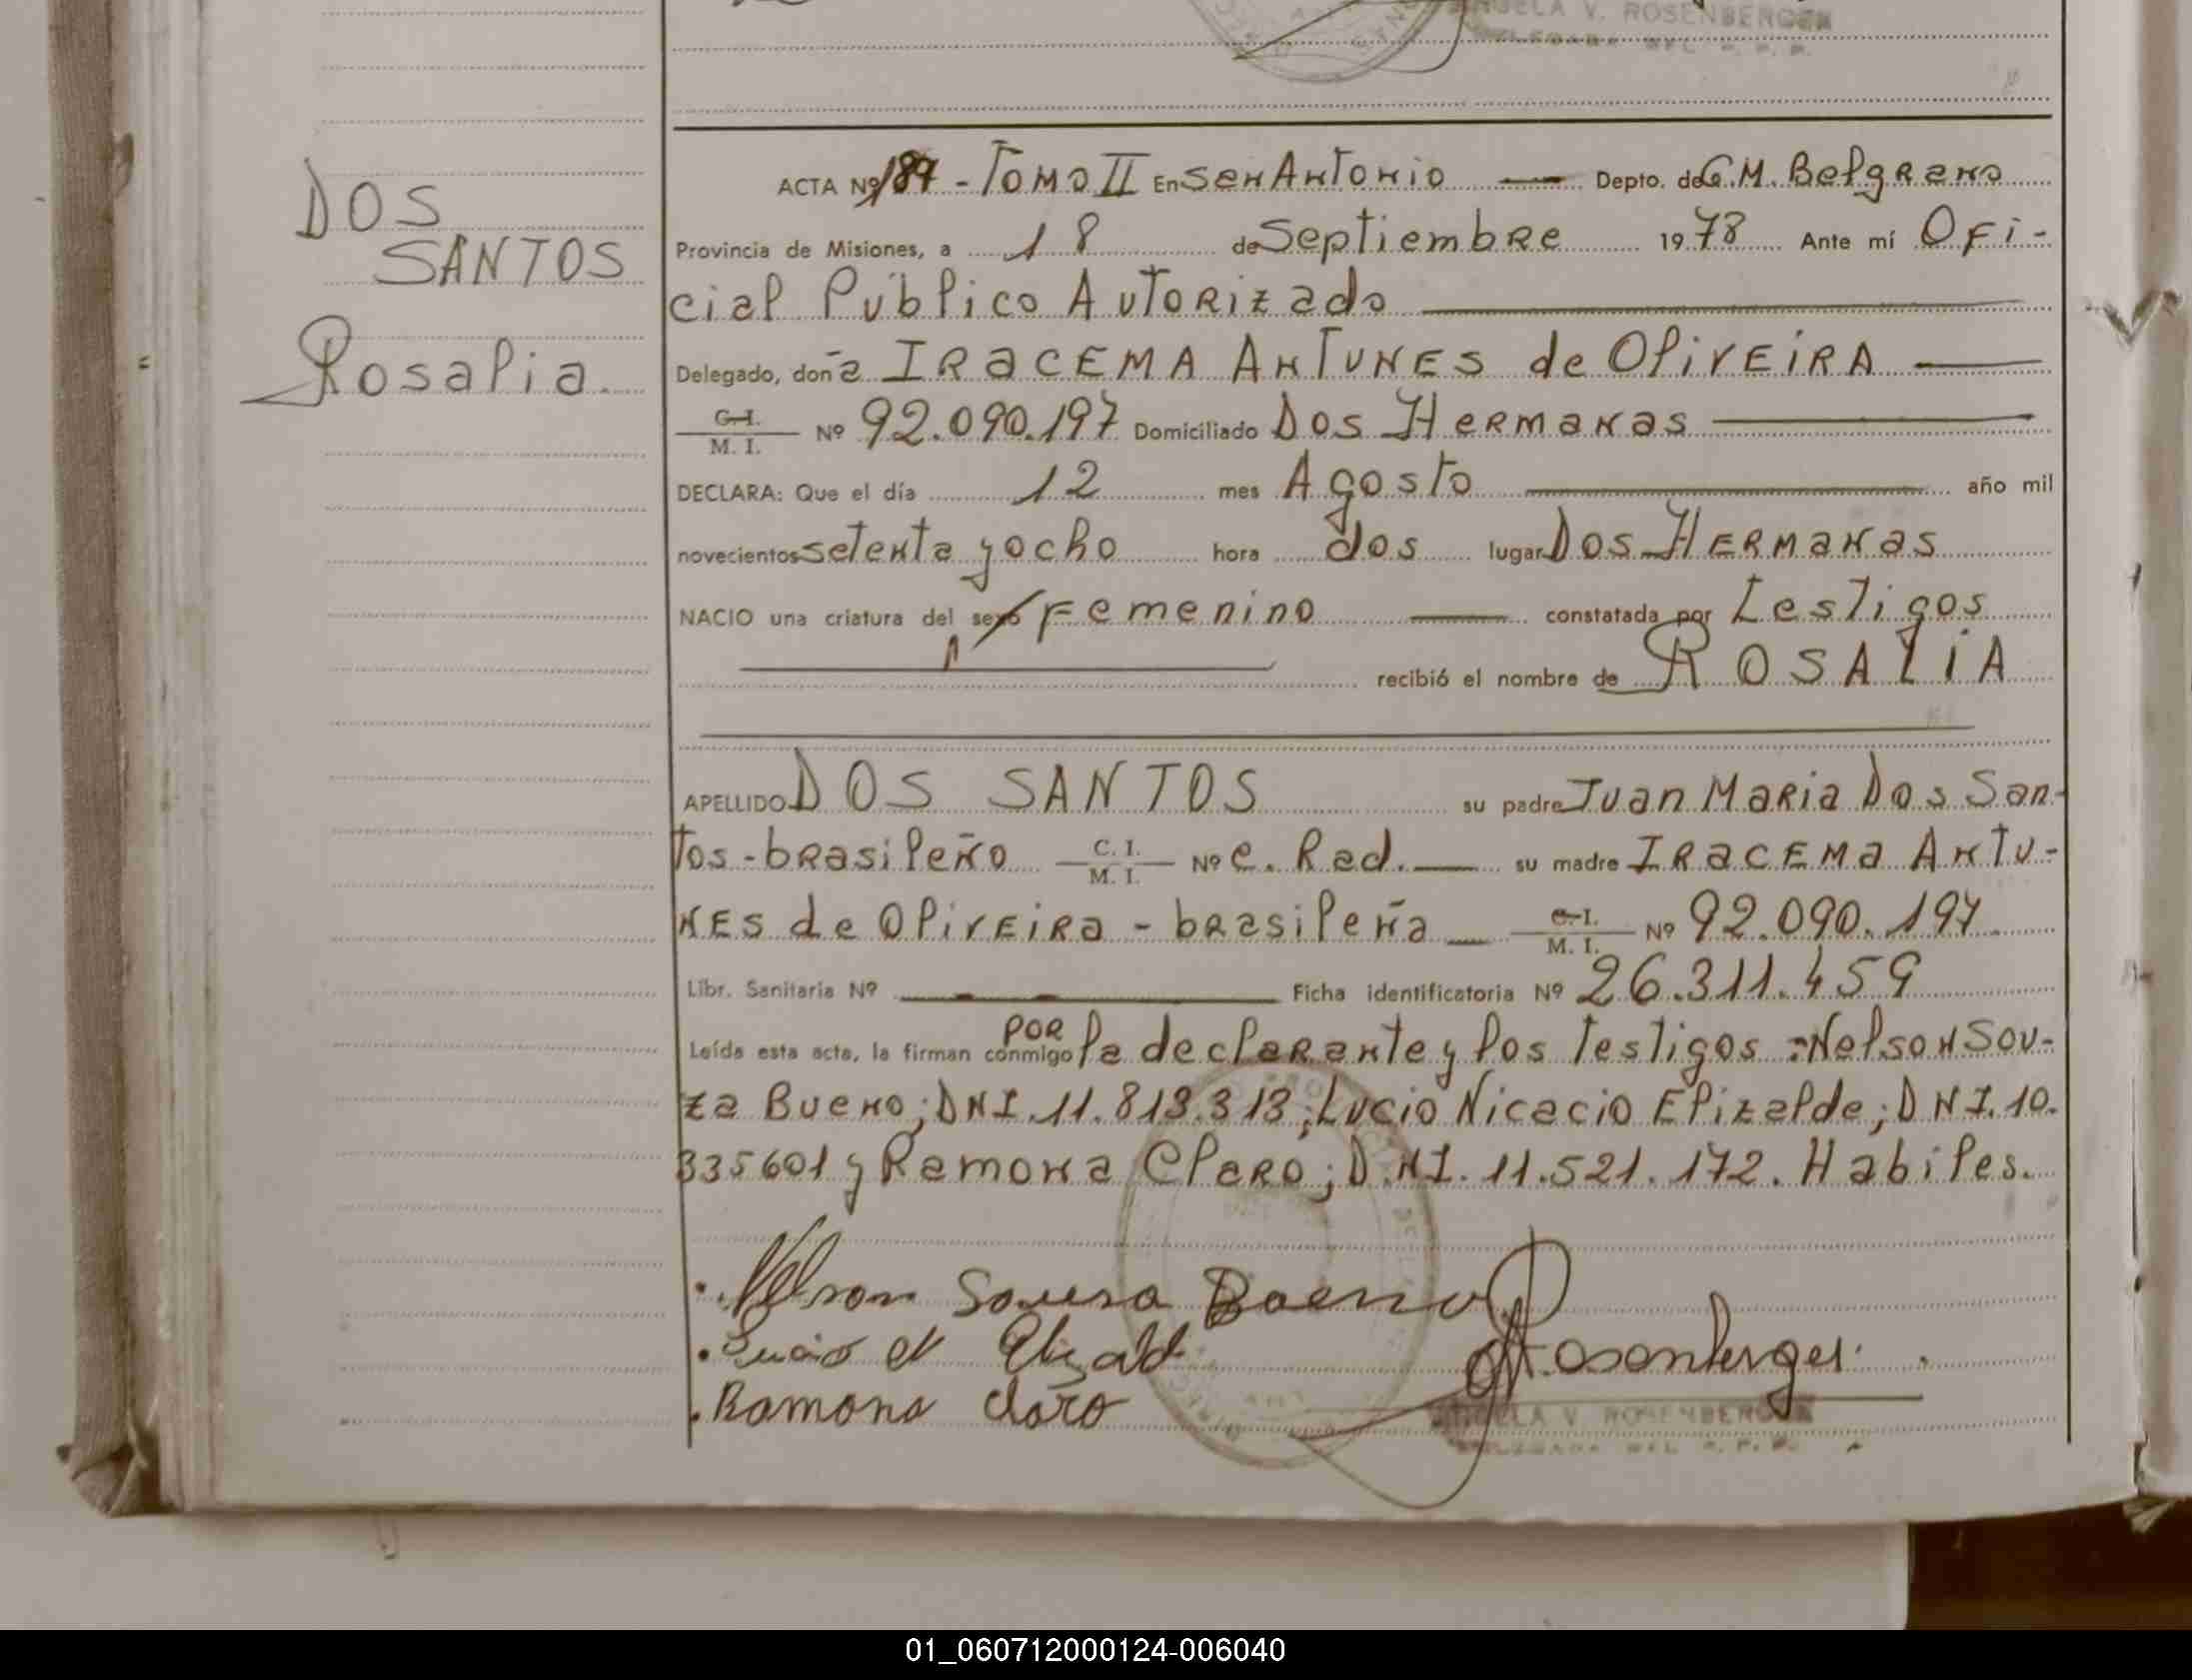 UELA V. ROSENBERGER
DELEGADA DEL R. P. P.
DOS
SANTOS
Rosalia.
ACTA Nº 187 - Tomo II En San Antonio Depto. de G.M. Belgrano
Provincia de Misiones, a 18 de Septiembre 1978 Ante mí Ofi-
cial Público Autorizado
Delegado, doña IRACEMA ANTUNES de OliVEiRA
C.I. M. I. Nº 92.090.197 Domiciliado Dos Hermanas
DECLARA: Que el día 12 mes Agosto año mil
novecientos setenta y ocho hora dos lugar Dos HERMANAS
NACIO una criatura del sexo Femenino constatada por Testigos
recibió el nombre de ROSALIA
APELLIDO DOS SANTOS su padre Juan Maria Dos San-
tos - brasileño C. I. M. I. Nº C. Rad. su madre IRACEMA ANTU-
NES de OliVEiRa - brasileña C.I. M. I. Nº 92.090.197
Libr. Sanitaria Nº Ficha identificatoria Nº 26.311.459
Leída esta acta, la firman conmigo POR la declarante y los Testigos: Nelson Sou-
za Bueno; DNI. 11.813.313; Lucio Nicacio Elizalde; DNI. 10.
335601 y Ramona Claro; D.NI. 11.521.172. Habiles.
Nelson Sousa Boeno
Lucio N Elizald
Rosenberger
Ramona Claro
UELA V. ROSENBERGER
DELEGADA DEL R. P. P.
01_060712000124-006040